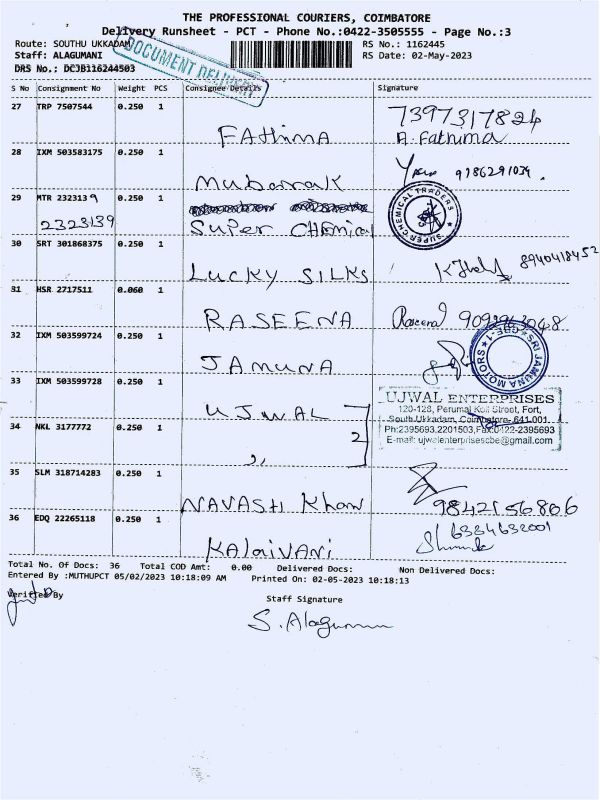 THE PROFESSIONAL COURIERS, COIMBATORE
Delivery Runsheet - PCT - Phone No.:0422-3505555 - Page No.:3
Route: SOUTHU UKKADAM
RS No.: 1162445
Staff: ALAGUMANI
RS Date: 02-May-2023
DRS No.: DCJB116244503
DOCUMENT DELIVERY
S No Consignment No Weight PCS Consignee Details Signature
27 TRP 7507544 0.250 1
FAthima
7397317824
A. Fathima
28 IXM 503583175 0.250 1
Mubarak
9786291034.
29 MTR 2323139 0.250 1
2323139
Super Chemical
SUPER CHEMICAL TRADERS
30 SRT 301868375 0.250 1
LUCKY SILKS
8940418452
31 HSR 2717511 0.060 1
RASEENA
Raseena 9092963048
32 IXM 503599724 0.250 1
JAMUNA
SRI JAMUNA MOTORS CBE-1
33 IXM 503599728 0.250 1
UJWAL
UJWAL ENTERPRISES
120-128, Perumal Koil Street, Fort,
South Ukkadam, Coimbatore- 641 001.
Ph:2395693,2201503,Fax:0422-2395693
E-mail: ujwalenterprisescbe@gmail.com
34 NKL 3177772 0.250 1
,, 2
35 SLM 318714283 0.250 1
NAVASH Khan
9842156806
36 EDQ 22265118 0.250 1
KAlAiVANi
6334632001
Total No. Of Docs: 36 Total COD Amt: 0.00 Delivered Docs: Non Delivered Docs:
Entered By :MUTHUPCT 05/02/2023 10:18:09 AM Printed On: 02-05-2023 10:18:13
Verified By
Staff Signature
S. Alagumani